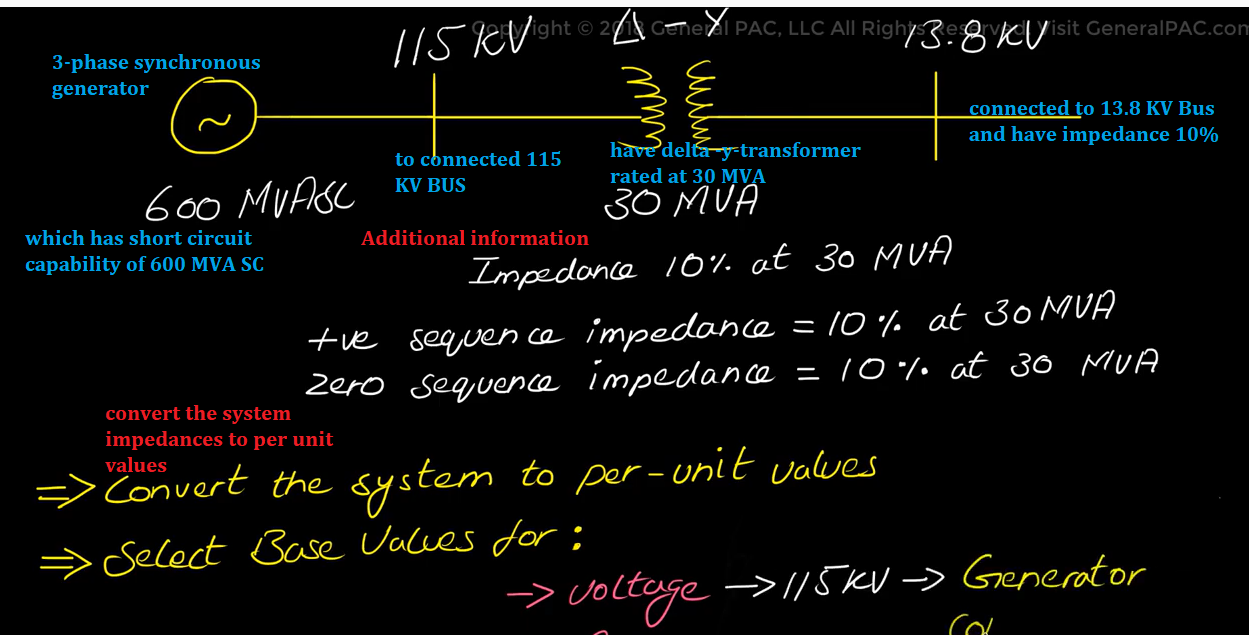 Copyright © 2018 General PAC, LLC All Rights Reserved. Visit GeneralPAC.com
115 KV
Δ - Y
13.8 KV
3-phase synchronous
generator
~
connected to 13.8 KV Bus
and have impedance 10%
to connected 115
KV BUS
have delta-y-transformer
rated at 30 MVA
600 MVASC
30 MVA
which has short circuit
capability of 600 MVA SC
Additional information
Impedance 10% at 30 MVA
+ve sequence impedance = 10% at 30 MVA
zero sequence impedance = 10% at 30 MVA
convert the system
impedances to per unit
values
=> Convert the system to per-unit values
=> Select Base Values for :
-> Voltage -> 115 KV -> Generator